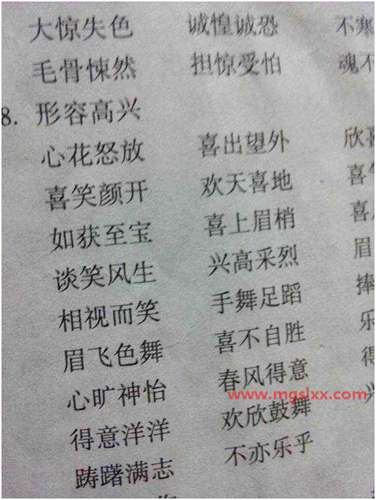 大惊失色 诚惶诚恐 不寒
毛骨悚然 担惊受怕 魂不
8. 形容高兴
心花怒放 喜出望外 欣喜
喜笑颜开 欢天喜地 喜
如获至宝 喜上眉梢 喜
谈笑风生 兴高采烈 眉
相视而笑 手舞足蹈 捧
眉飞色舞 喜不自胜 乐
心旷神怡 春风得意 得
www.mgslxx.com
得意洋洋 欢欣鼓舞
踌躇满志 不亦乐乎